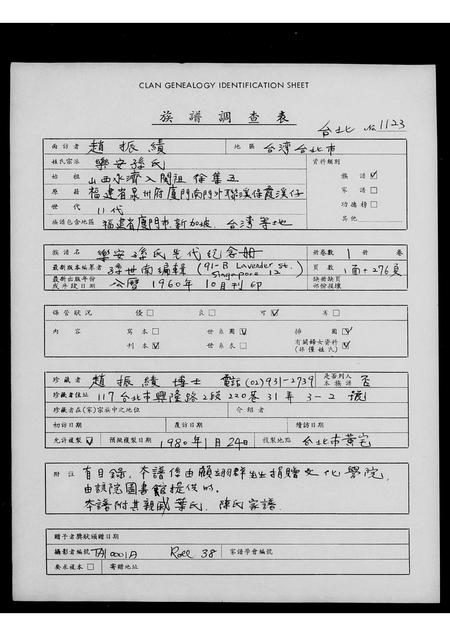 CLAN GENEALOGY IDENTIFICATION SHEET
族譜調查表
台北 No 1123
面訪者 趙振績 地區 台湾台北市
姓氏宗派 樂安孫氏 資料類別
始祖 山西永濟入閩祖 族譜 ✓
原籍 福建省泉州府廈門南門外 家譜 □
世代 11代 功德榜 □
族譜包含地區 福建省廈門市,新加坡,台湾等地 其他
族譜名 樂安孫氏先代纪念册 冊卷數 1 冊 卷
最新版本編纂者 孫世南編輯 (91-B Lavender St. Singapore 12) 頁數 1面+276頁
最新出版年份或斗段日期 公曆1960年10月刊印 缺冊缺頁部份接攘
保管狀況 優 □ 良 □ 可 ☑ 劣 □
內容 寫本 □ 世系圖 ☑ 插圖 ☑
刊本 ☑ 世系表 □ 有關婦女資料(非僅姓氏) ☑
珍藏者 趙振績博士 電話(02)931-2739 是否列入本族譜 否
珍藏者住址 117台北市興隆路2段220巷31弄3-2號
珍藏者在(宗)家族中之地位 介紹者
初訪日期 覆訪日期 續訪日期
允許複製 ☑ 預擬複製日期 1980年1月24日 複製地點 台北市黄宅
附註 有目錄. 本譜係由顧翊群先生捐贈文化學院,
由該院圖書館提供的.
本譜附其親戚葉氏、陳氏家譜.
贈予者獎狀頒贈日期
攝影者編號 TA10001A Roll 38 家譜學會編號
要求複本 □ 寄贈地址